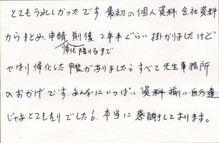 とてもうれしかったです。最初の個人資料、会社資料
からまとめ、申請前後2年半ぐらい掛かりましたけど
帰化降りるまで
やはり帰化した甲斐がありました。すべて先生事務所
のおかげです。あんなにいっぱい資料揃い自分達
じゃとてもむりでした！本当に感謝しております。